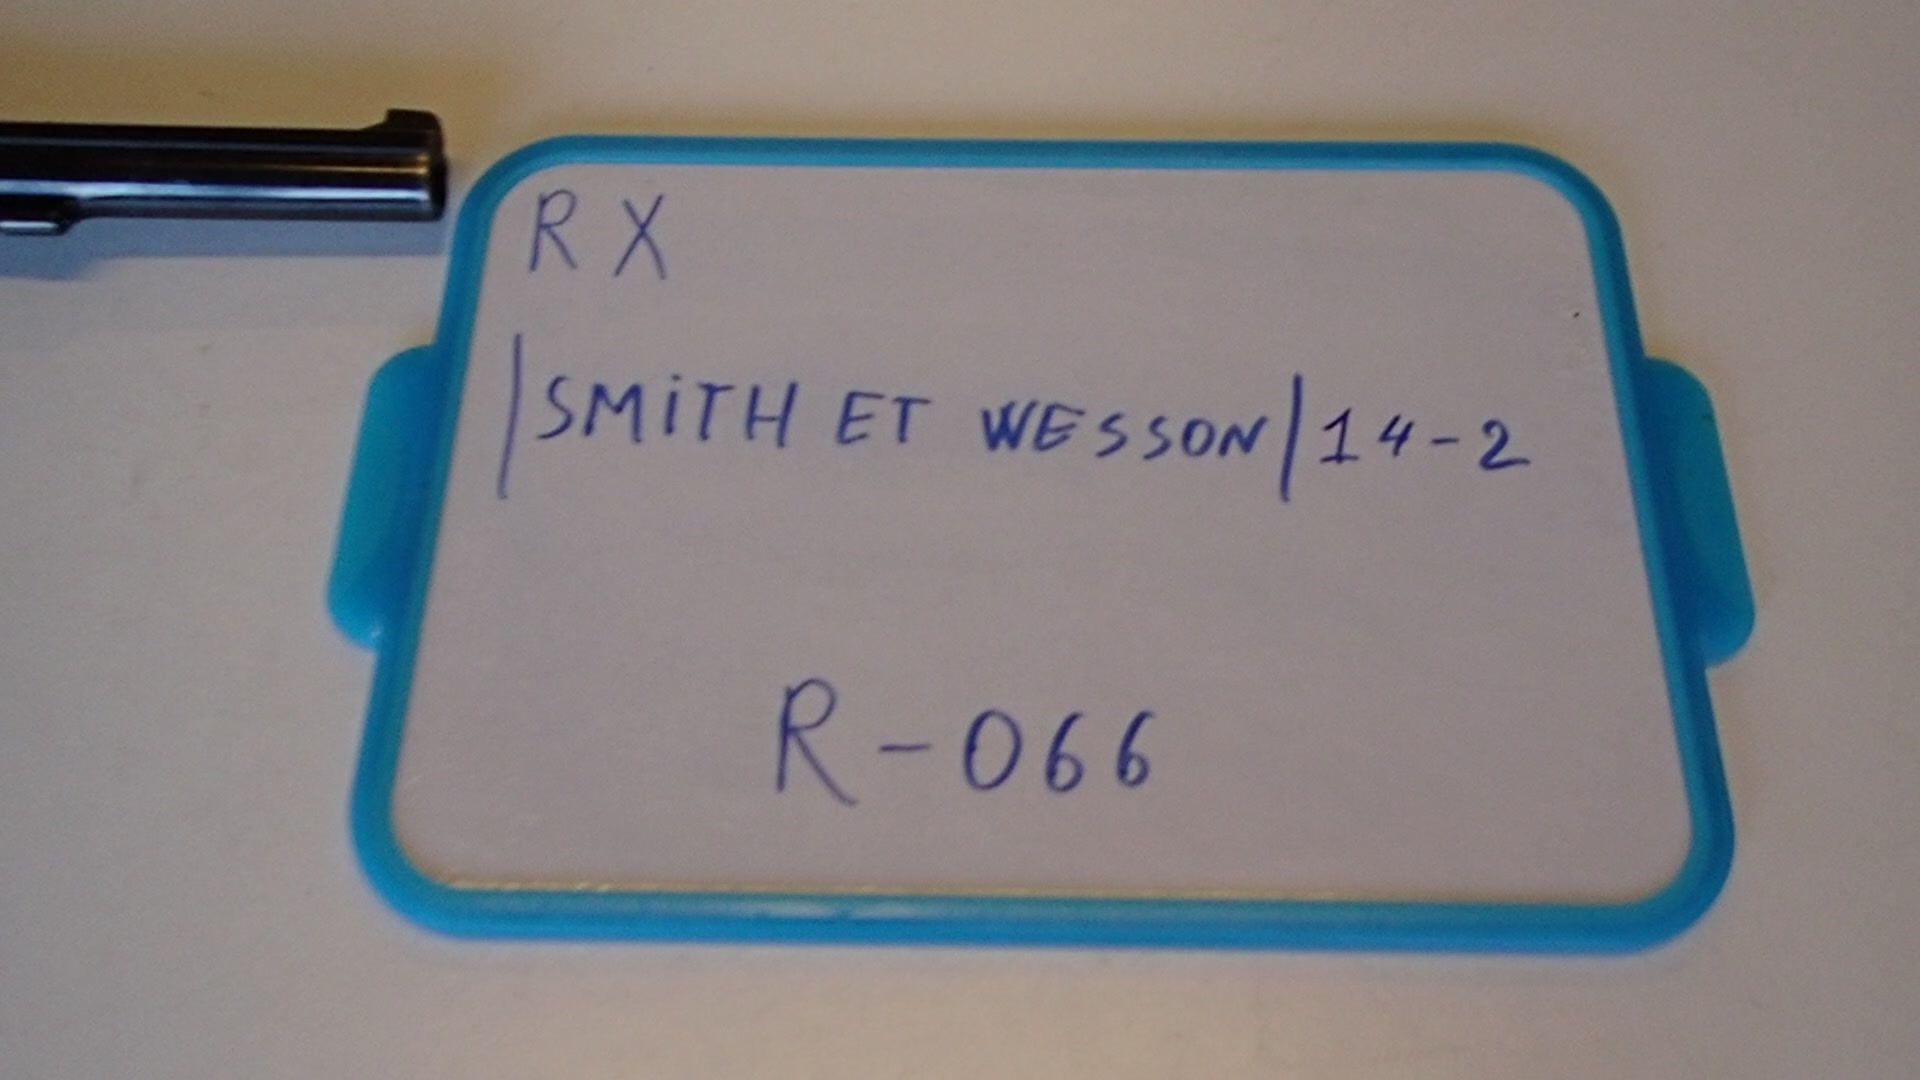 RX
|SMiTH ET WESSON|14-2
R-066